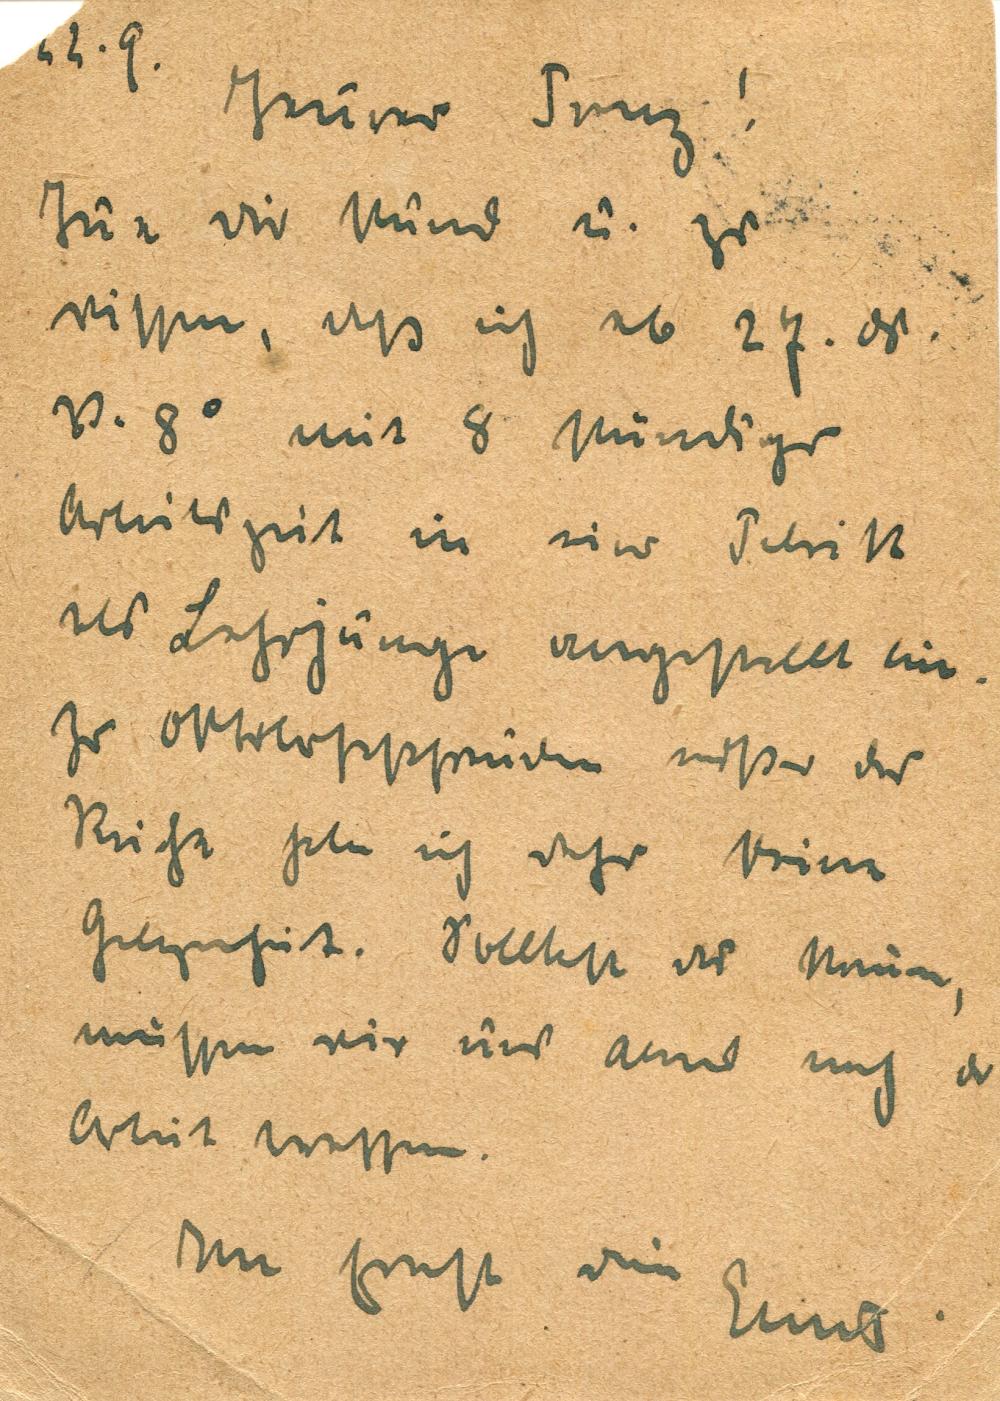 22.9.
Teurer Franz!
Tue dir kund u. zu
wissen, daß ich ab 27. ds.
V. 8° mit 8 stündiger
Arbeitszeit in einer Fabrik
als Lehrjunge angestellt bin.
Zu Oktoberfestfreuden außer der
Reihe habe ich daher keine
Gelegenheit. Solltest du kommen,
müssen wir uns abends nach der
Arbeit treffen.
dein